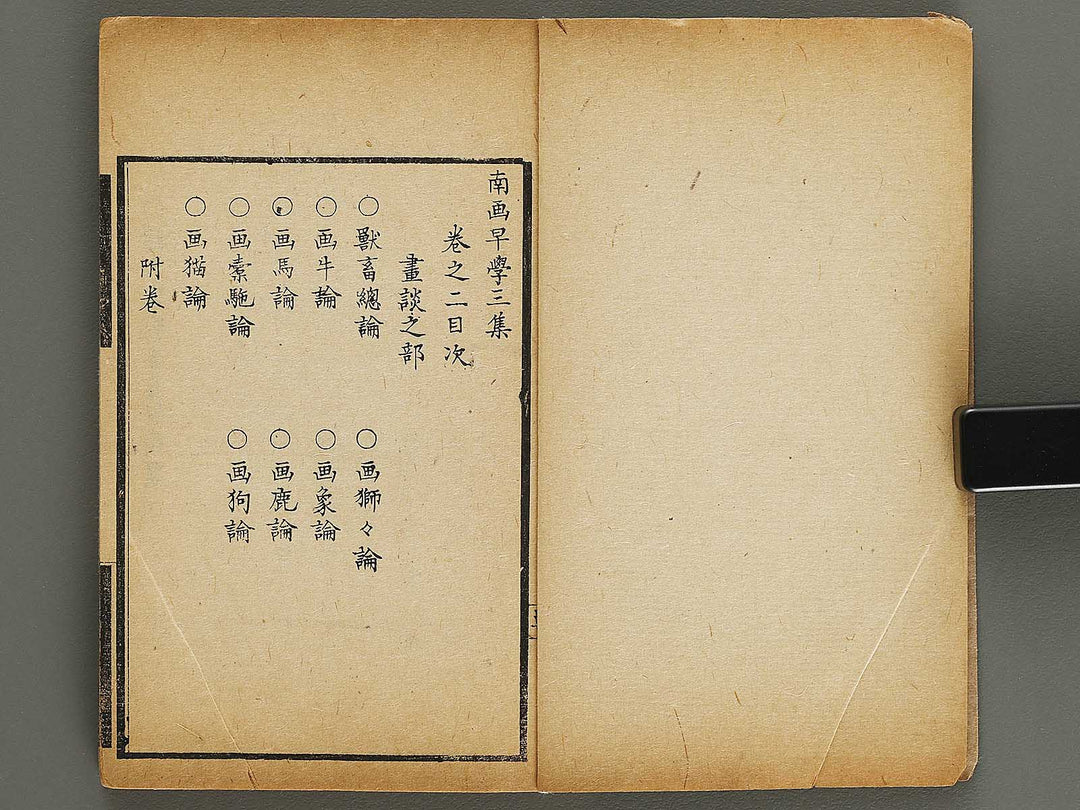 南画早學三集
巻之二目次
畫談之部
○獸畜總論
○画獅々論
○画牛論
○画象論
○画馬論
○画鹿論
○画橐駞論
○画狗論
○画猫論
附巻